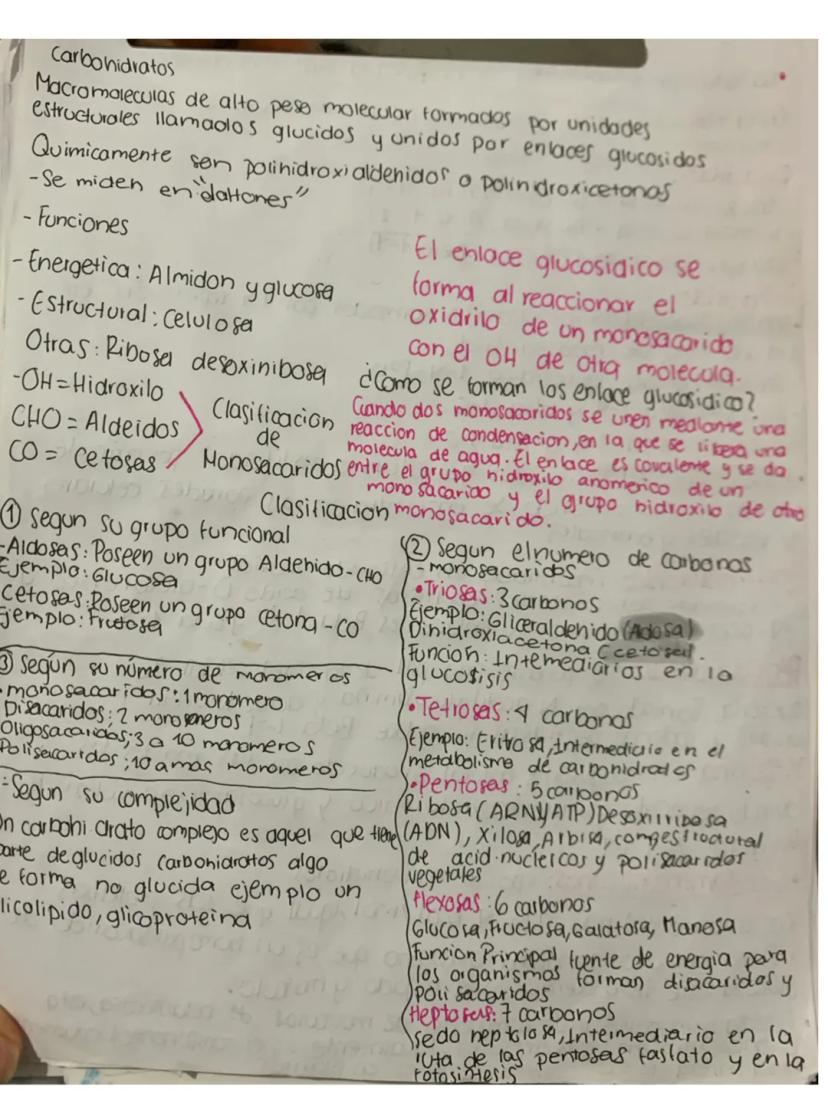 Carbohidratos
Macromoleculas de alto peso molecular formados por unidades
estructurales llamados glucidos y unidos por enlaces glucosidos
Quimicamente son polihidroxialdehidos o polihidroxicetonas
-Se miden en "daltones"
- Funciones
- Energetica: Almidon y glucosa
- Estructural: Celulosa
Otras: Ribosa desoxiribosa
-OH = Hidroxilo
CHO = Aldeidos
CO = Cetosas
Clasificacion
de
Monosacaridos
El enlace glucosidico se
forma al reaccionar el
oxidrilo de un monosacarido
con el OH de otra molecula.
¿Como se forman los enlace glucosidico?
Cuando dos monosacaridos se unen mediante una
reaccion de condensacion, en la que se libera una
molecula de agua. El enlace es covalente y se da
entre el grupo hidroxilo anomerico de un
monosacarido y el grupo hidroxilo de otro
monosacarido.
Clasificacion
① Segun su grupo funcional
-Aldosas: Poseen un grupo Aldehido-CHO
Ejemplo: Glucosa
Cetosas: Poseen un grupo cetona-CO
Ejemplo: Frutosa
③ Según su número de monomeros
· monosacaridos: 1 monomero
Disacaridos: 2 monomeros
Oligosacaridos; 3 a 10 monomeros
Polisacaridos; 10 a mas monomeros
- Segun su complejidad
Un carbohidrato complejo es aquel que tiene
parte de glucidos carbohidratos algo
de forma no glucida ejemplo un
glicolipido, glicoproteina
② Segun el numero de carbonos
- monosacaridos
• Triosas: 3 carbonos
Ejemplo: Gliceraldehido (Adosa)
Dihidroxiacetona (cetosa).
Funcion: Intemediarios en la
glucosisis
• Tetrosas: 4 carbonos
Ejemplo: Eritrosa, Intermediario en el
metabolismo de carbohidratos
• Pentosas: 5 carbonos
Ribosa (ARN y ATP) Desoxirribosa
(ADN), Xilosa, Arbisa, compestructural
de acid. nucleicos y polisacaridos
vegetales
Hexosas: 6 carbonos
Glucosa, Fructosa, Galatosa, Manosa
Funcion Principal fuente de energia para
los organismos forman disacaridos y
polisacaridos
Heptosas: 7 carbonos
sedoheptolosa, Intermediario en la
ruta de las pentosas faslato y en la
fotosintesis